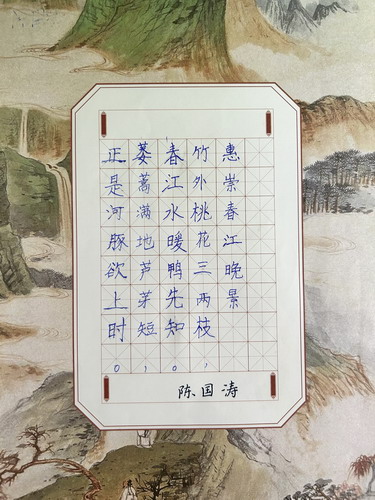 惠崇春江晚景
竹外桃花三两枝，
春江水暖鸭先知。
蒌蒿满地芦芽短，
正是河豚欲上时。
陈国涛